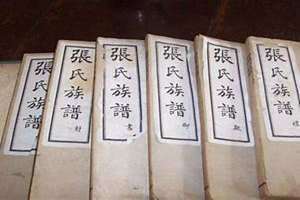 張氏族譜
張氏族譜
射
張氏族譜
書
張氏族譜
御
張氏族譜
張氏族譜
禮